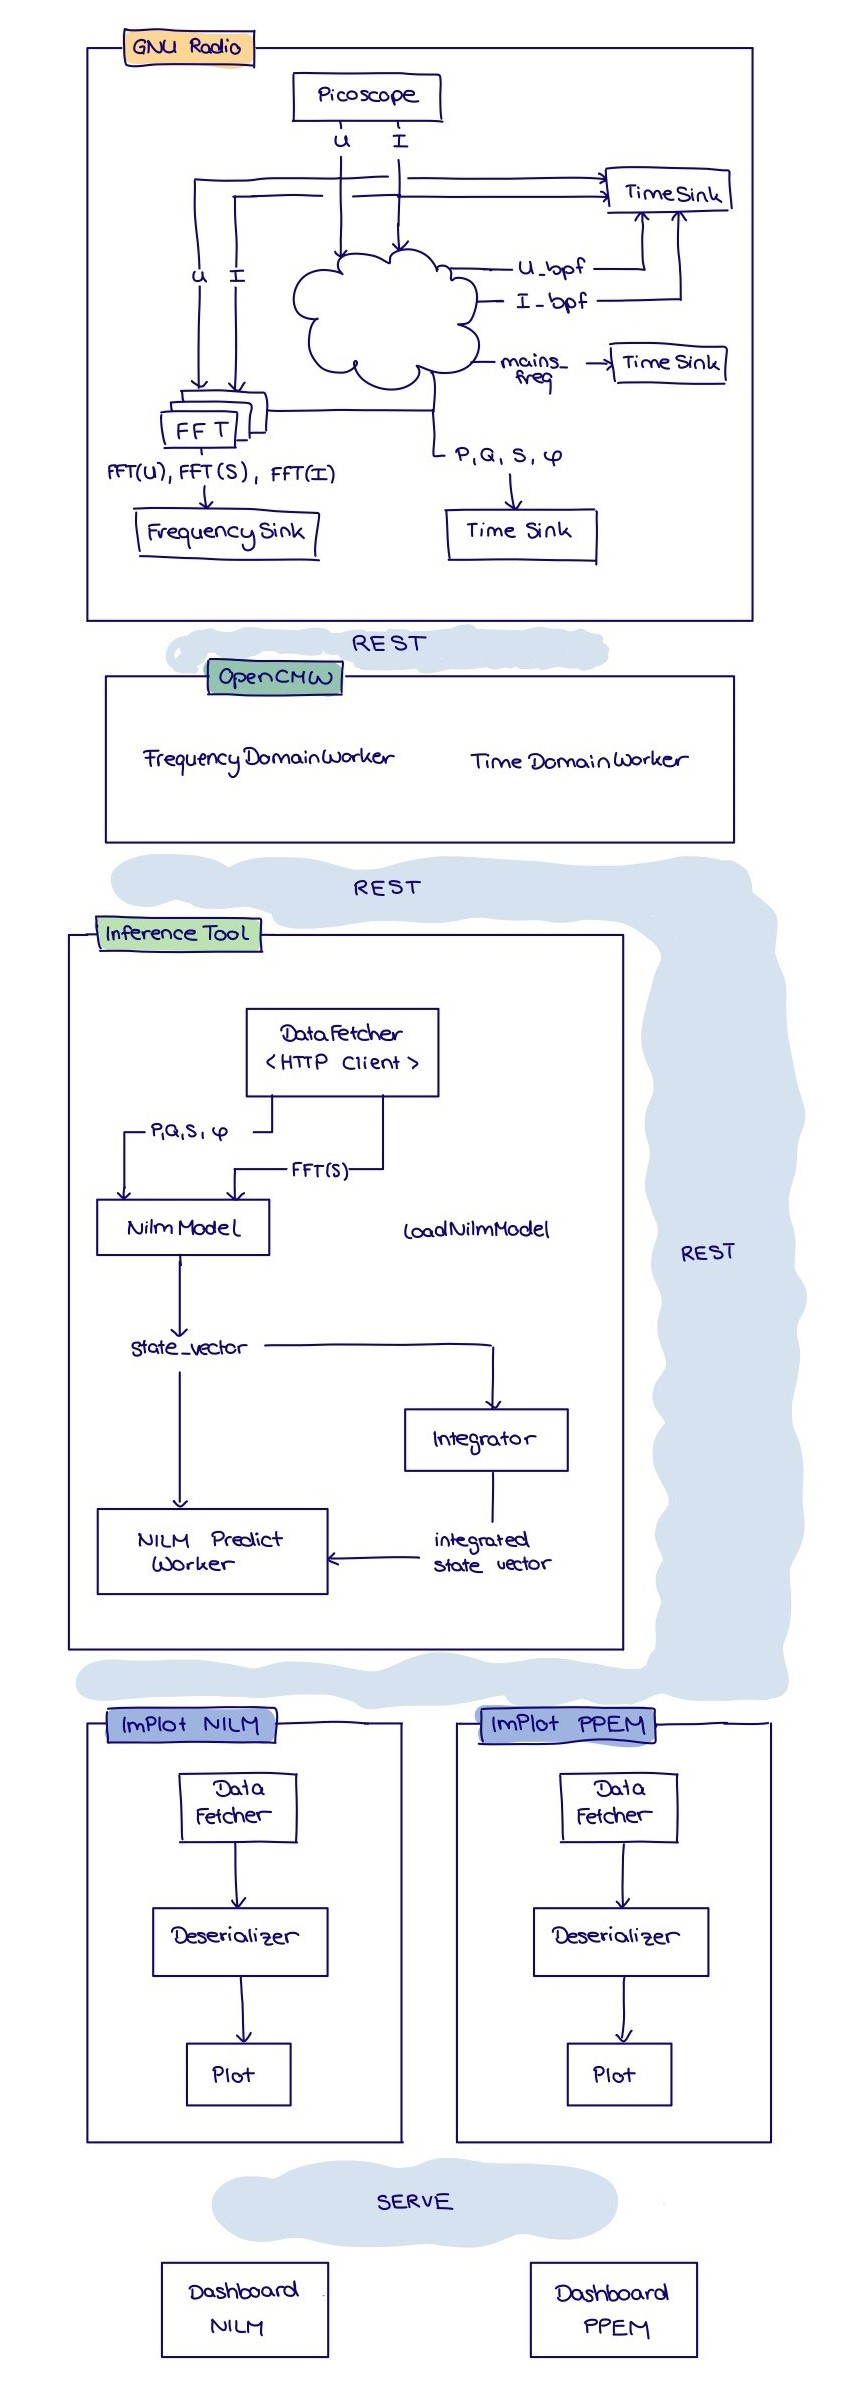 GNU Radio
Picoscope
U I
TimeSink
U I
U_bpf
I_bpf
mains_
freq
TimeSink
FFT
P, Q, S, φ
FFT(U), FFT(S), FFT(I)
FrequencySink
Time Sink
REST
OpenCMW
FrequencyDomainWorker
TimeDomainWorker
REST
Inference Tool
DataFetcher
<HTTP Client>
P,Q,S, φ
FFT(S)
NilmModel
LoadNilmModel
REST
state_vector
Integrator
NILM Predict
Worker
integrated
state vector
ImPlot NILM
ImPlot PPEM
Data
Fetcher
Data
Fetcher
Deserializer
Deserializer
Plot
Plot
SERVE
Dashboard
NILM
Dashboard
PPEM